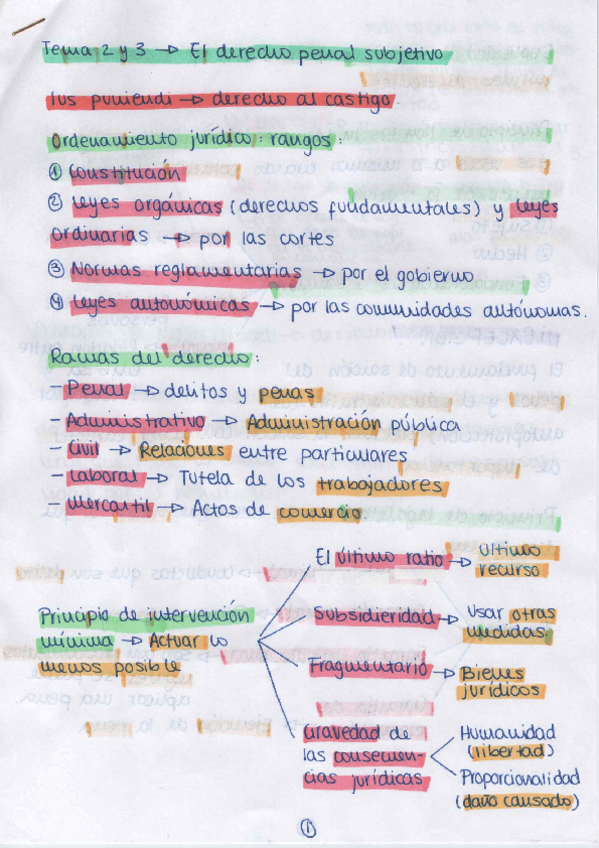 Tema 2 y 3 → El derecho penal subjetivo
Ius puniendi → derecho al castigo.
Ordenamiento jurídico: rangos:
① Constitución
② Leyes orgánicas (derechos fundamentales) y leyes
ordinarias → por las cortes
③ Normas reglamentarias → por el gobierno
④ Leyes autonómicas → por las comunidades autónomas.
Ramas del derecho:
- Penal → delitos y penas
- Administrativo → Administración pública
- Civil → Relaciones entre particulares
- Laboral → Tutela de los trabajadores
- Mercantil → Actos de comercio.
Principio de intervención
mínima → Actuar lo
menos posible
El último ratio → Último
recurso
Subsidieridad → Usar otras
medidas
Fragmentario → Bienes
jurídicos
Gravedad de
las consecuen-
cias jurídicas
Humanidad
(libertad)
Proporcionalidad
(daño causado)
①